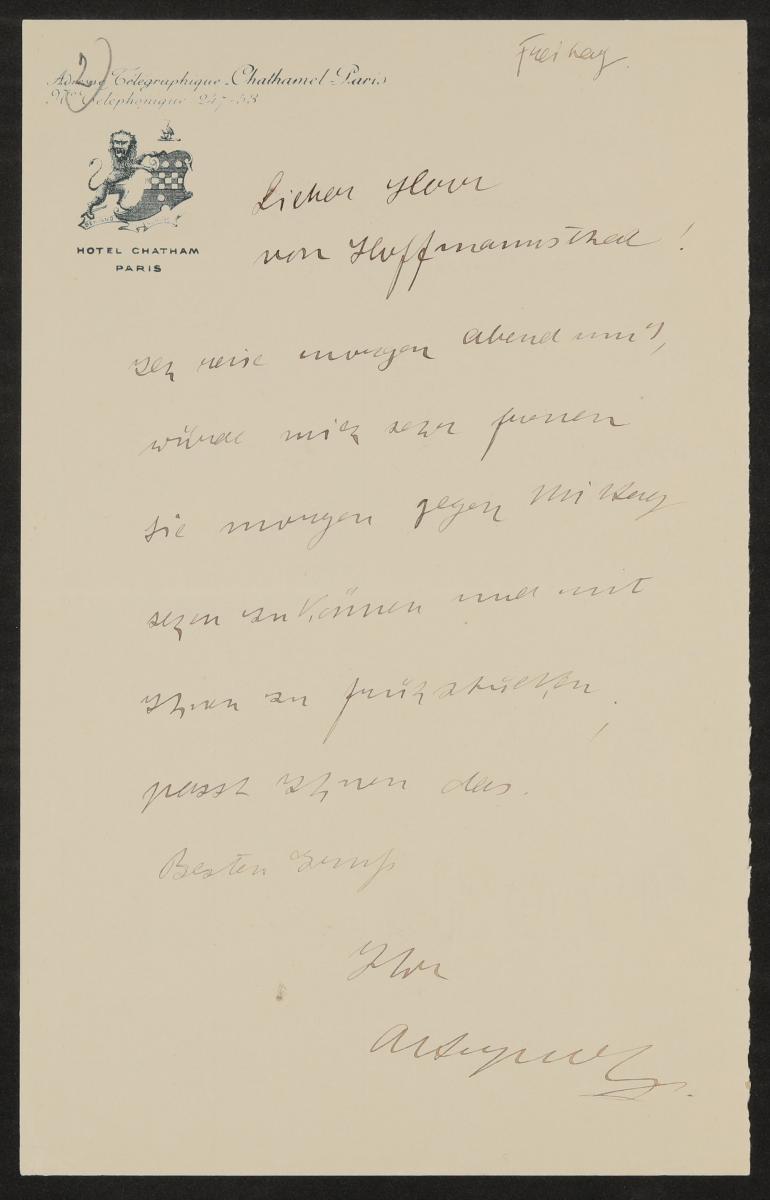 2)
Freitag.
Adresse Télégraphique - Chathamel - Paris
No Téléphonique 247-53
HOTEL CHATHAM
PARIS
Lieber Herr
von Hoffmannsthal!
Ich reise morgen abend
würde mich sehr freuen
Sie morgen gegen Mittag
sehen zu können und mit
Ihnen zu frühstücken,
passt Ihnen das.
Besten Gruß
Ihr